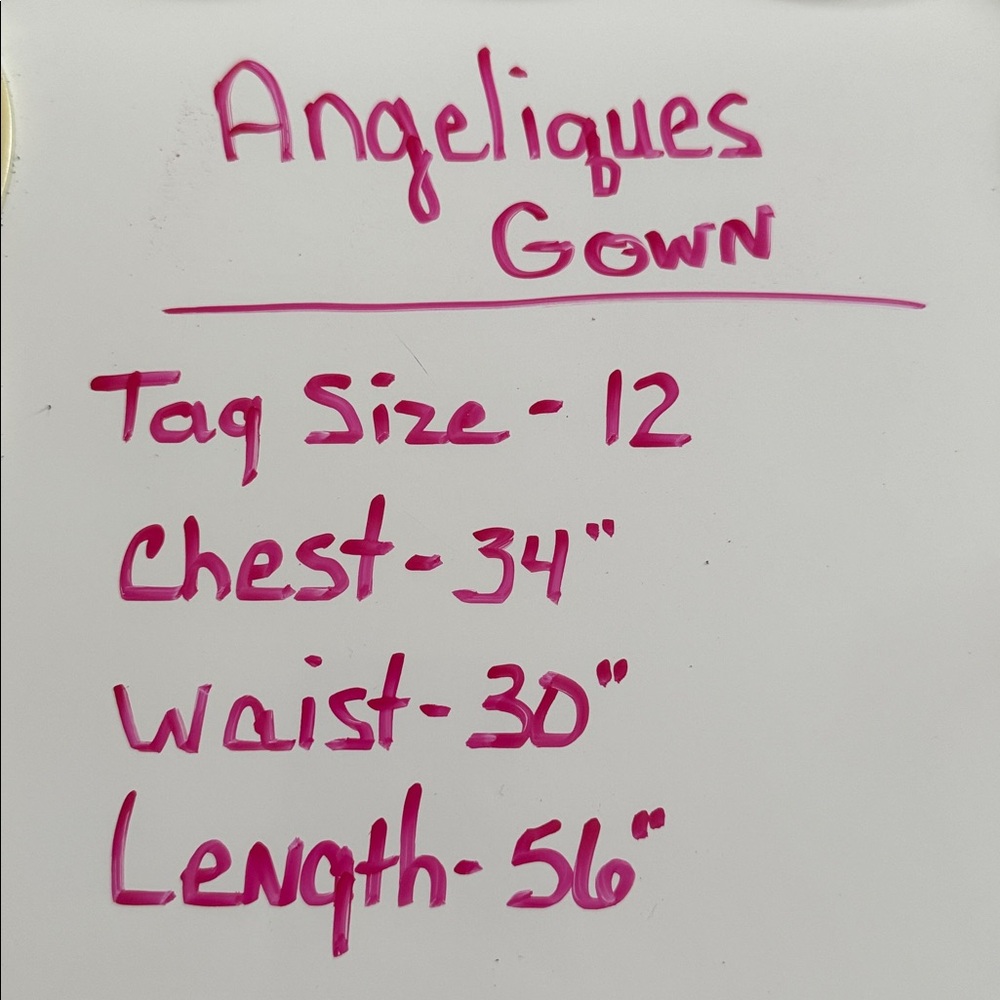 Angeliques
Gown
Tag Size - 12
Chest - 34"
Waist - 30"
Length - 56"